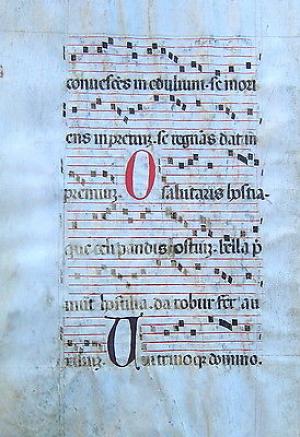 convescēs in edulium· se mori
ens in preciuz· se regnās dat in
premiuz· O salutaris hostia·
que celi pandis hostiuz· bella p̄
mut hostilia· da robur fer au
xiliuz· Uni trinoqz domino·